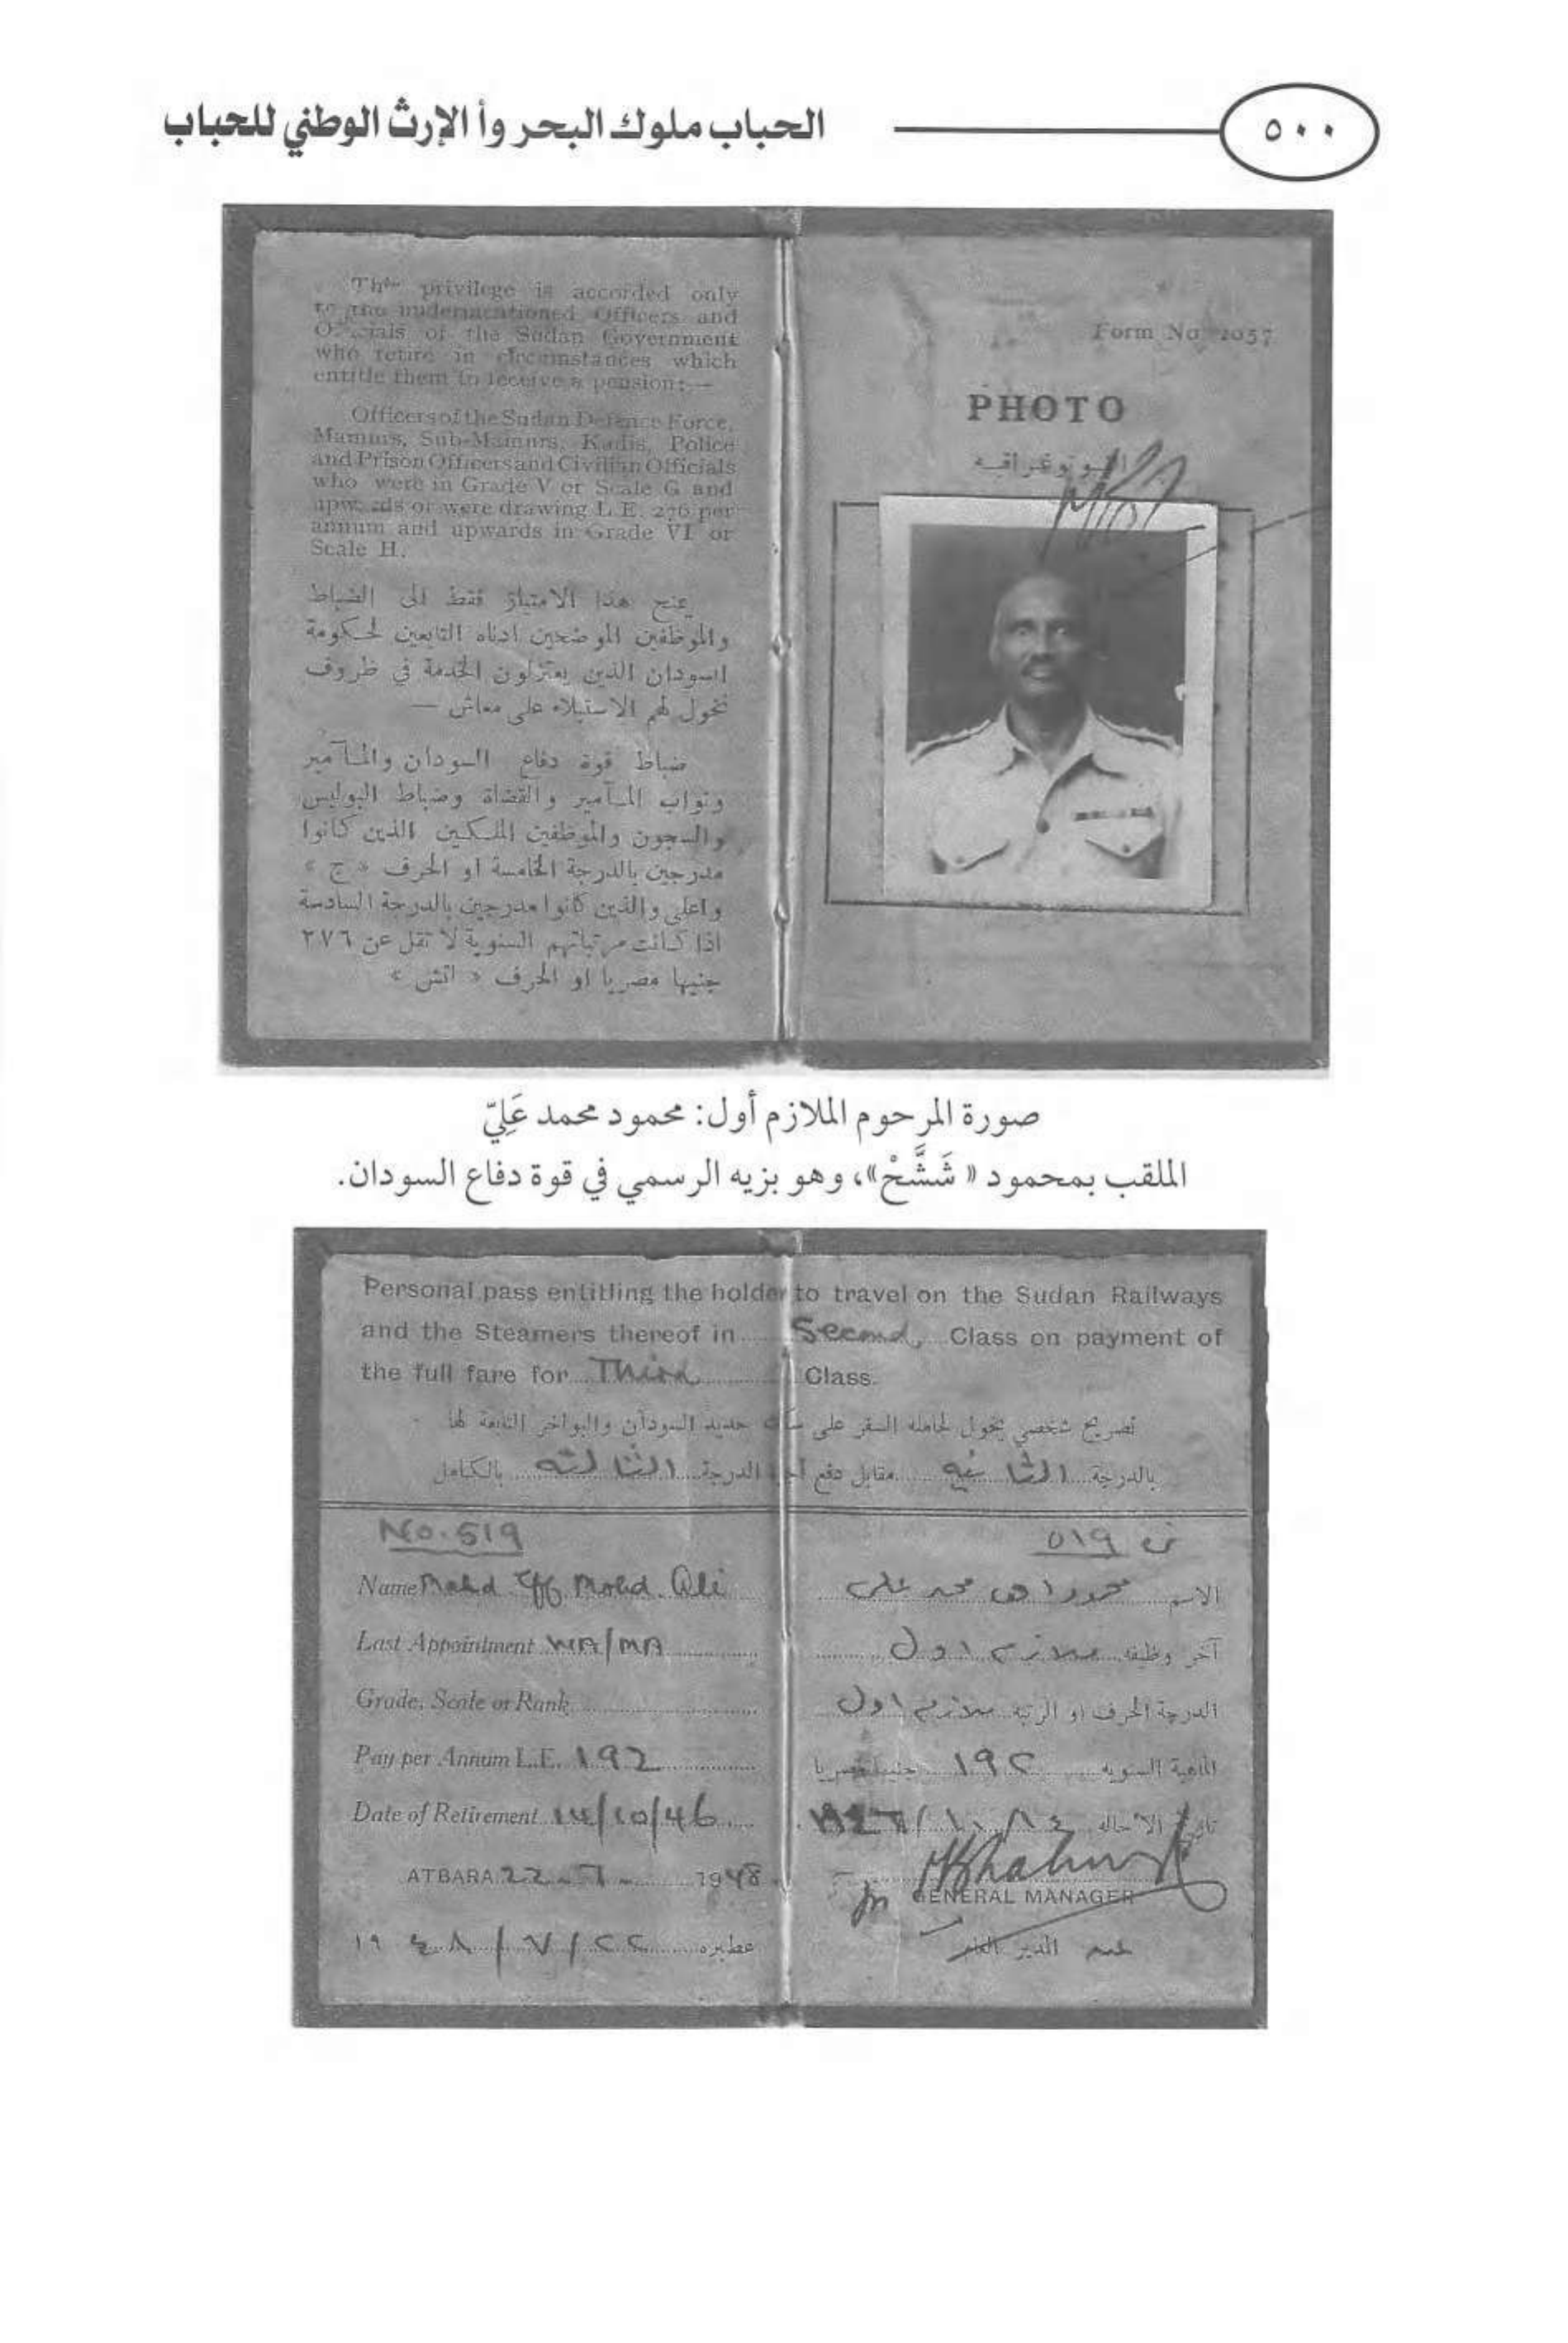 الحباب ملوك البحر وأ الإرث الوطني للحباب
٥٠٠
privilege is accorded only
to the undermentioned Officers and
Officials of the Sudan Government
who retire in circumstances which
entitle them to receive a pension:—
Officers of the Sudan Defence Force,
Mamurs, Sub-Mamurs, Kadis, Police
and Prison Officers and Civilian Officials
who were in Grade V or Scale G and
upwards or were drawing L.E. 276 per
annum and upwards in Grade VI or
Scale H.
يمنح هذا الامتياز فقط الى الضباط
والموظفين الموضحين ادناه التابعين لحكومة
السودان الذين يعتزلون الخدمة في ظروف
تخول لهم الاستيلاء على معاش —
ضباط قوة دفاع السودان والمآمير
ونواب المآمير والقضاة وضباط البوليس
والسجون والموظفين الملكيين الذين كانوا
مدرجين بالدرجة الخامسة او الحرف « ج »
واعلى والذين كانوا مدرجين بالدرجة السادسة
اذا كانت مرتباتهم السنوية لا تقل عن ٢٧٦
جنيها مصريا او الحرف « اتش »
Form No. 2057
PHOTO
الفوتوغرافيه
صورة المرحوم الملازم أول: محمود محمد عَلِيّ
الملقب بمحمود « شَشَّحْ»، وهو بزيه الرسمي في قوة دفاع السودان.
Personal pass entitling the holder to travel on the Sudan Railways
and the Steamers thereof in Second Class on payment of
the full fare for Third Class.
تصريح شخصي يخول لحامله السفر على سكك حديد السودان والبواخر التابعة لها
بالدرجة الثانية مقابل دفع اجرة الدرجة الثالثه بالكامل
No. 519
Name Mahd Eff. Mohd. Ali
Last Appointment WA/MA
Grade, Scale or Rank
Pay per Annum L.E. 192
Date of Retirement 14/10/46
ATBARA 22-7- 1948
عطبره ٢٢/٧/ ٤٨ ١٩
٥١٩
الاسم محمود افـ محمد على
آخر وظيفه ملازم اول
الدرجة الحرف او الرتبة ملازم اول
الماهية السنويه ١٩٢ جنيها مصريا
تاريخ الاحاله ١٤/١٠/١٩٤٦
GENERAL MANAGER
عنه المدير العام